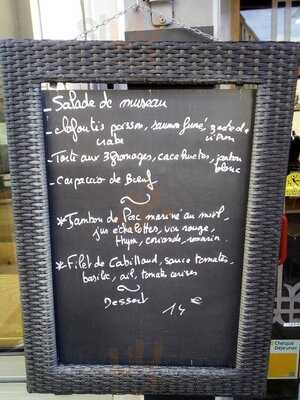 Salade de museau
- clafoutis poisson, saumon fumé
crabe
- Tarte aux 3 fromages, cacahuètes, jambon
blanc
- Carpaccio de Bœuf
~
* Jambon de Porc mariné au miel,
jus échalottes, vin rouge,
thym, coriande, romarin.
* Filet de Cabillaud, sauce tomates,
basilic, ail, tomate cerises
~
Dessert
14 €
Chèque
Déjeuner